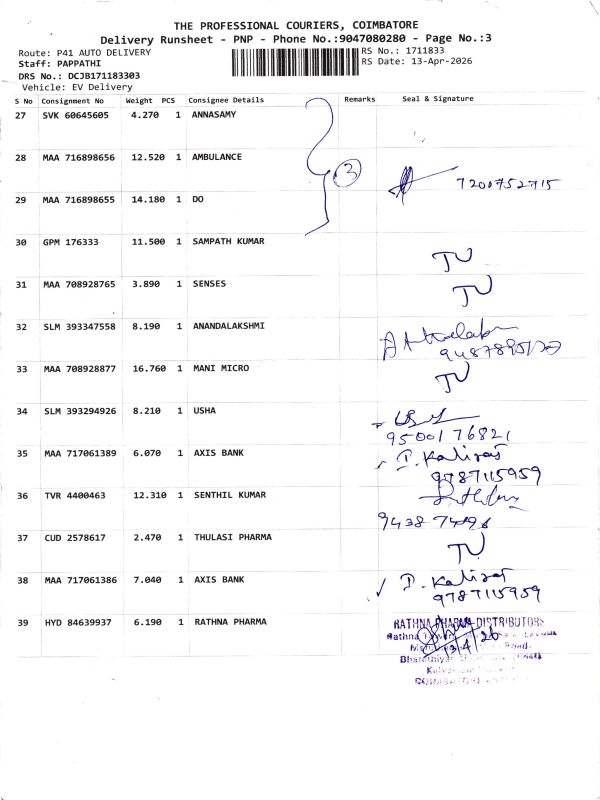 THE PROFESSIONAL COURIERS, COIMBATORE
Delivery Runsheet - PNP - Phone No.:9047080280 - Page No.:3
Route: P41 AUTO DELIVERY
RS No.: 1711833
Staff: PAPPATHI
RS Date: 13-Apr-2026
DRS No.: DCJB171183303
Vehicle: EV Delivery
S No Consignment No Weight PCS Consignee Details Remarks Seal & Signature
27 SVK 60645605 4.270 1 ANNASAMY
28 MAA 716898656 12.520 1 AMBULANCE
3
7200752715
29 MAA 716898655 14.180 1 DO
30 GPM 176333 11.500 1 SAMPATH KUMAR
TJ
31 MAA 708928765 3.890 1 SENSES
TJ
32 SLM 393347558 8.190 1 ANANDALAKSHMI
33 MAA 708928877 16.760 1 MANI MICRO
TJ
34 SLM 393294926 8.210 1 USHA
9500176821
35 MAA 717061389 6.070 1 AXIS BANK
9787115959
36 TVR 4400463 12.310 1 SENTHIL KUMAR
37 CUD 2578617 2.470 1 THULASI PHARMA
TJ
38 MAA 717061386 7.040 1 AXIS BANK
9787115959
39 HYD 84639937 6.190 1 RATHNA PHARMA
RATHNA PHARMA DISTRIBUTORS
Rathna
13/4/26